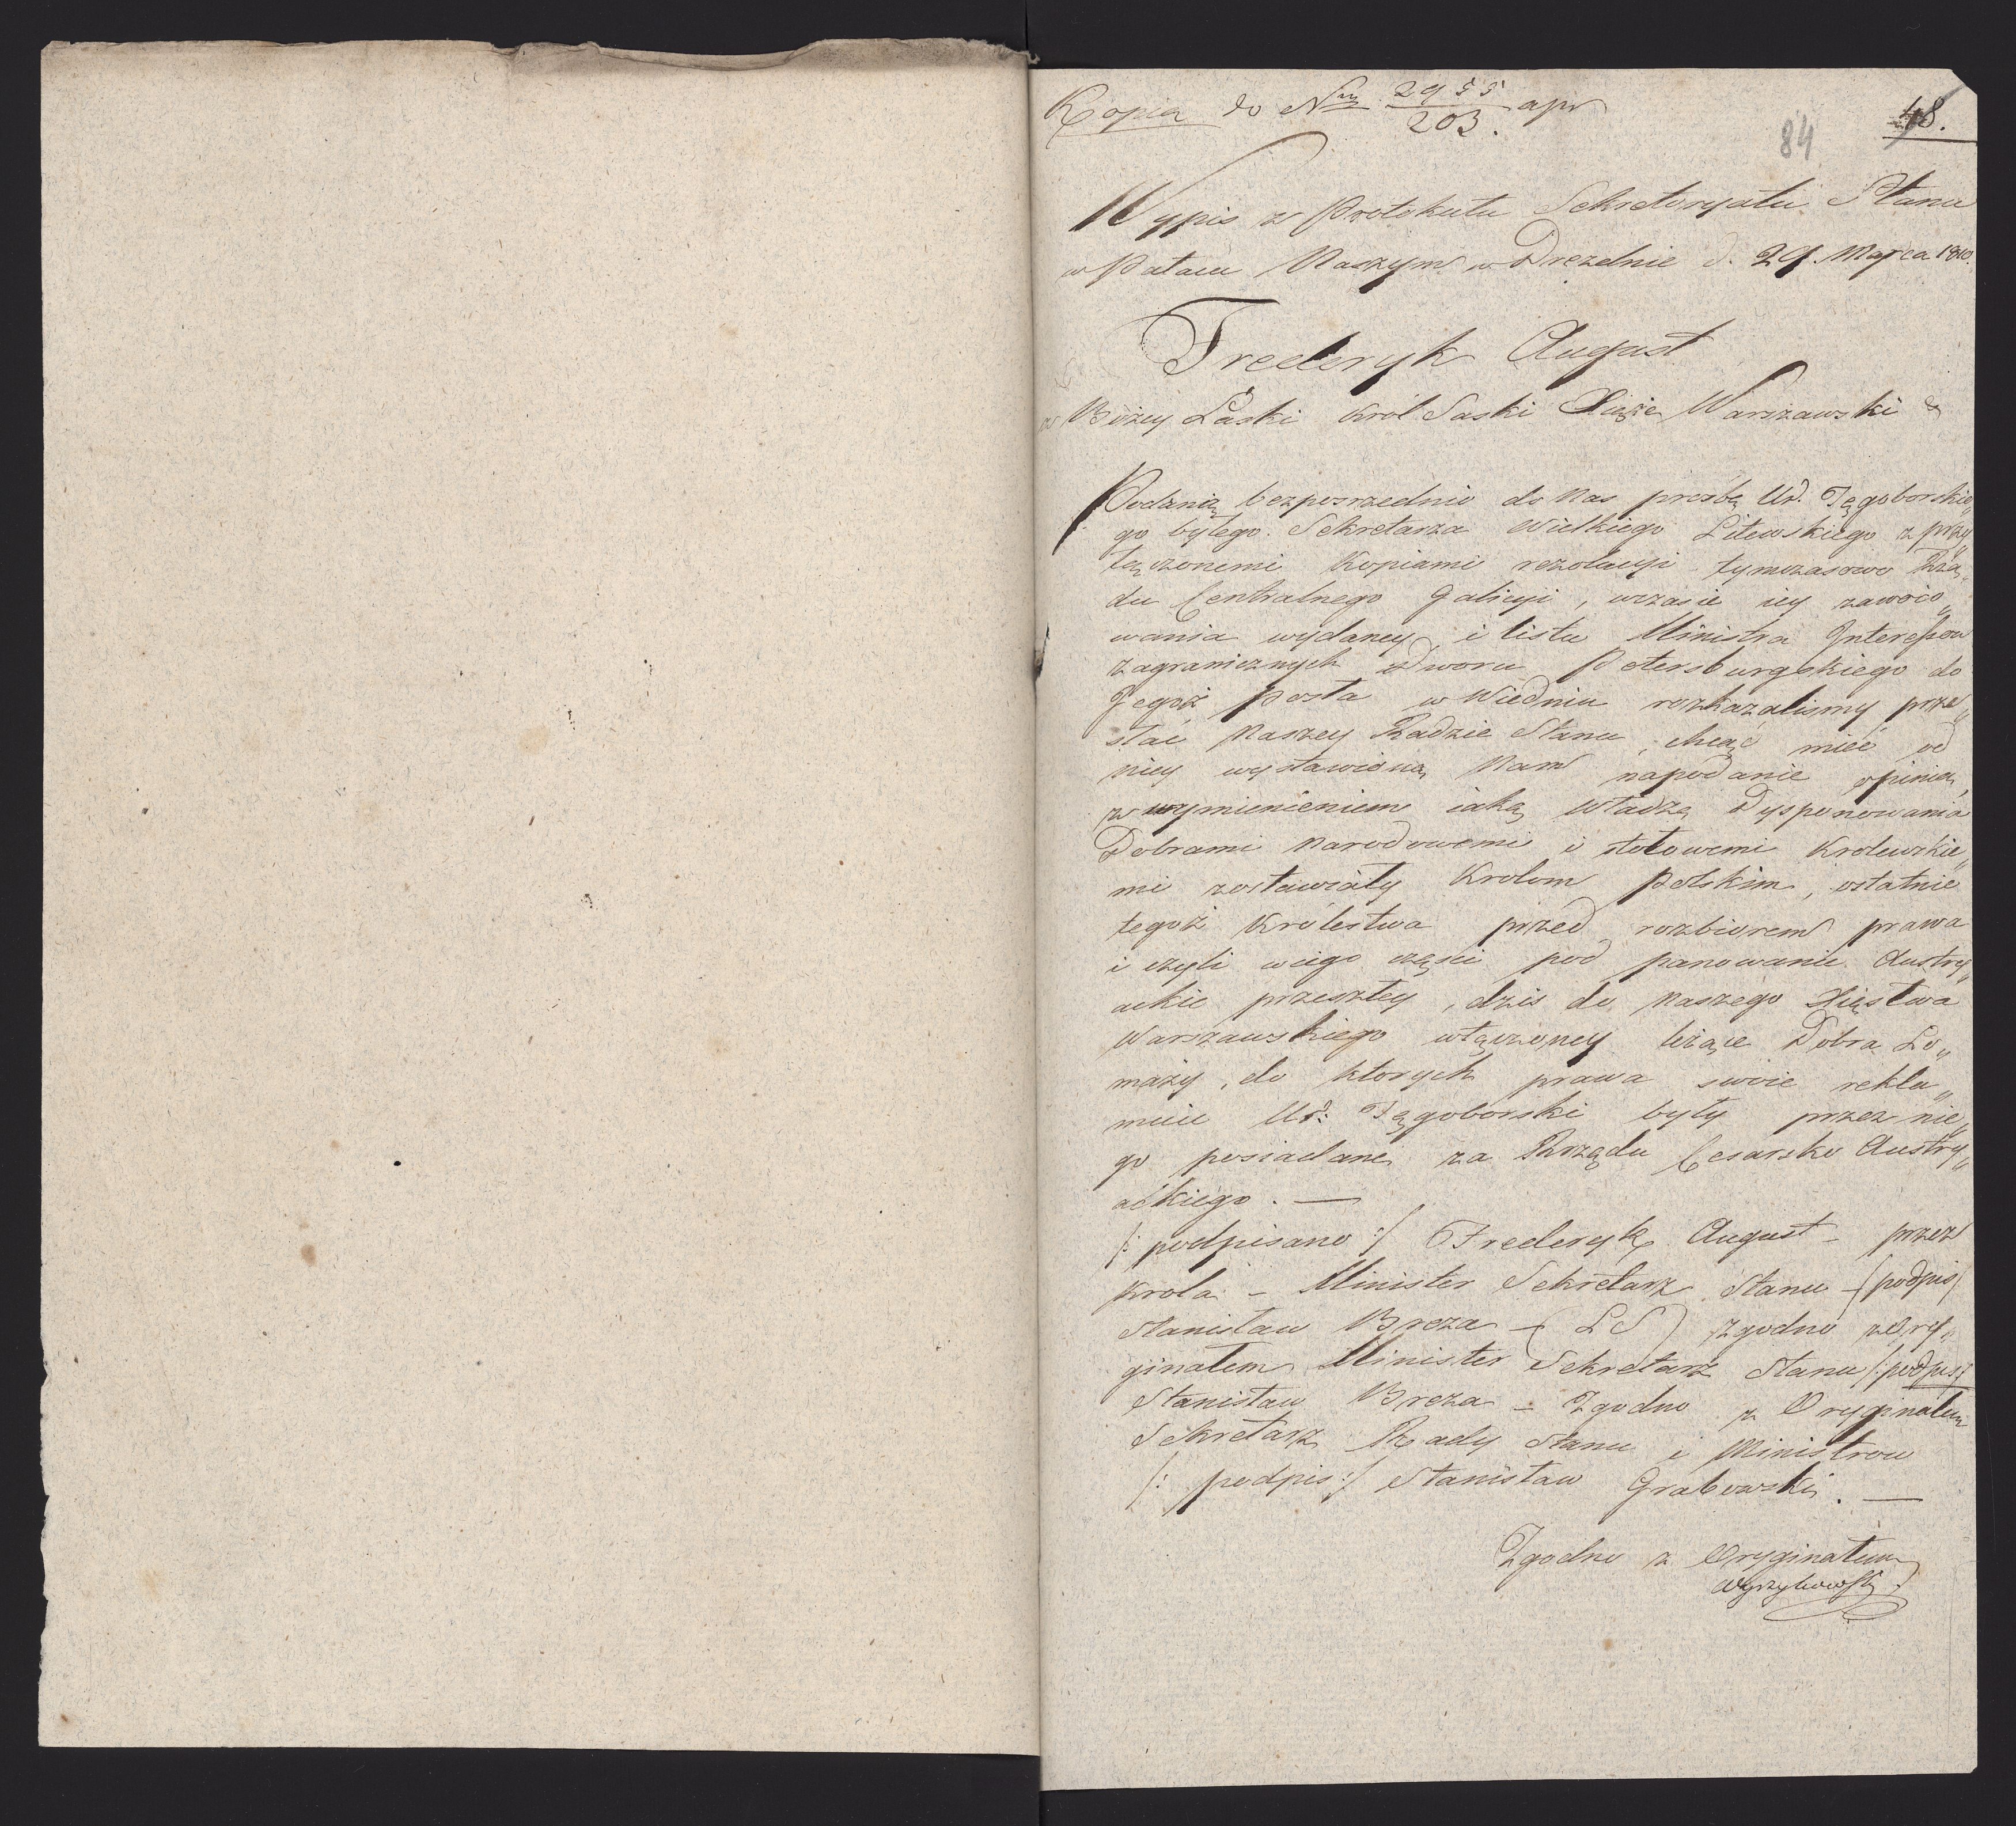 Kopia do Nru 2955/203. apr
84 48.
Wypis z Protokułu Sekretoryatu Stanu
w Pałacu Naszym w Dreznie d. 29. Marca 1810.
Frederyk August
z Bożey Łaski Król Saski Xiąże Warszawski &
Podaną bezposrzednio do Nas prozbę Ur. Tęgoborskie„
go byłego Sekretarza Wielkiego Litewskiego z przy„
łączonemi Kopiami rezolucyi tymczasowo Rzą„
du Centralnego Galicyi, wczasie iey zawoio„
wania wydaney i listu Ministra Interessow
zagranicznych Dworu Petersburgskiego do
Jegoż Posła w Wiedniu rozkazalismy prze„
słać Naszey Radzie Stanu, chcąc mieć od
niey wystawioną Nam napodanie opinią,
z wymienieniem iaką władzę Dysponowania
Dobrami Narodowemi i stołowemi Krolewskie„
mi zostawiały Krolom Polskim, ostatnie
tegoż Królestwa przed rozbiorem prawa
i czyli wiego części pod panowanie Austry„
ackie przeszłey, dzis do Naszego Xięstwa
Warszawskiego włączoney leżące Dobra Ło„
mazy, do ktorych prawa swoie rekla„
muie Ur: Tęgoborski były przez nie„
go posiadane za Rządu Cesarsko Austry„
ackiego. —
/: podpisano :/ Frederyk August – przez
Krola – Minister Sekretarz Stanu – /podpis/
Stanisław Breza – (LS) zgodno z Ory„
ginałem Minister Sekretarz Stanu /:podpis:/
Stanisław Breza – Zgodno z Oryginałem
Sekretarz Rady Stanu i Ministrow
/: podpis :/ Stanisław Grabowski. —
Zgodno z Oryginałem
Wyrzykowski